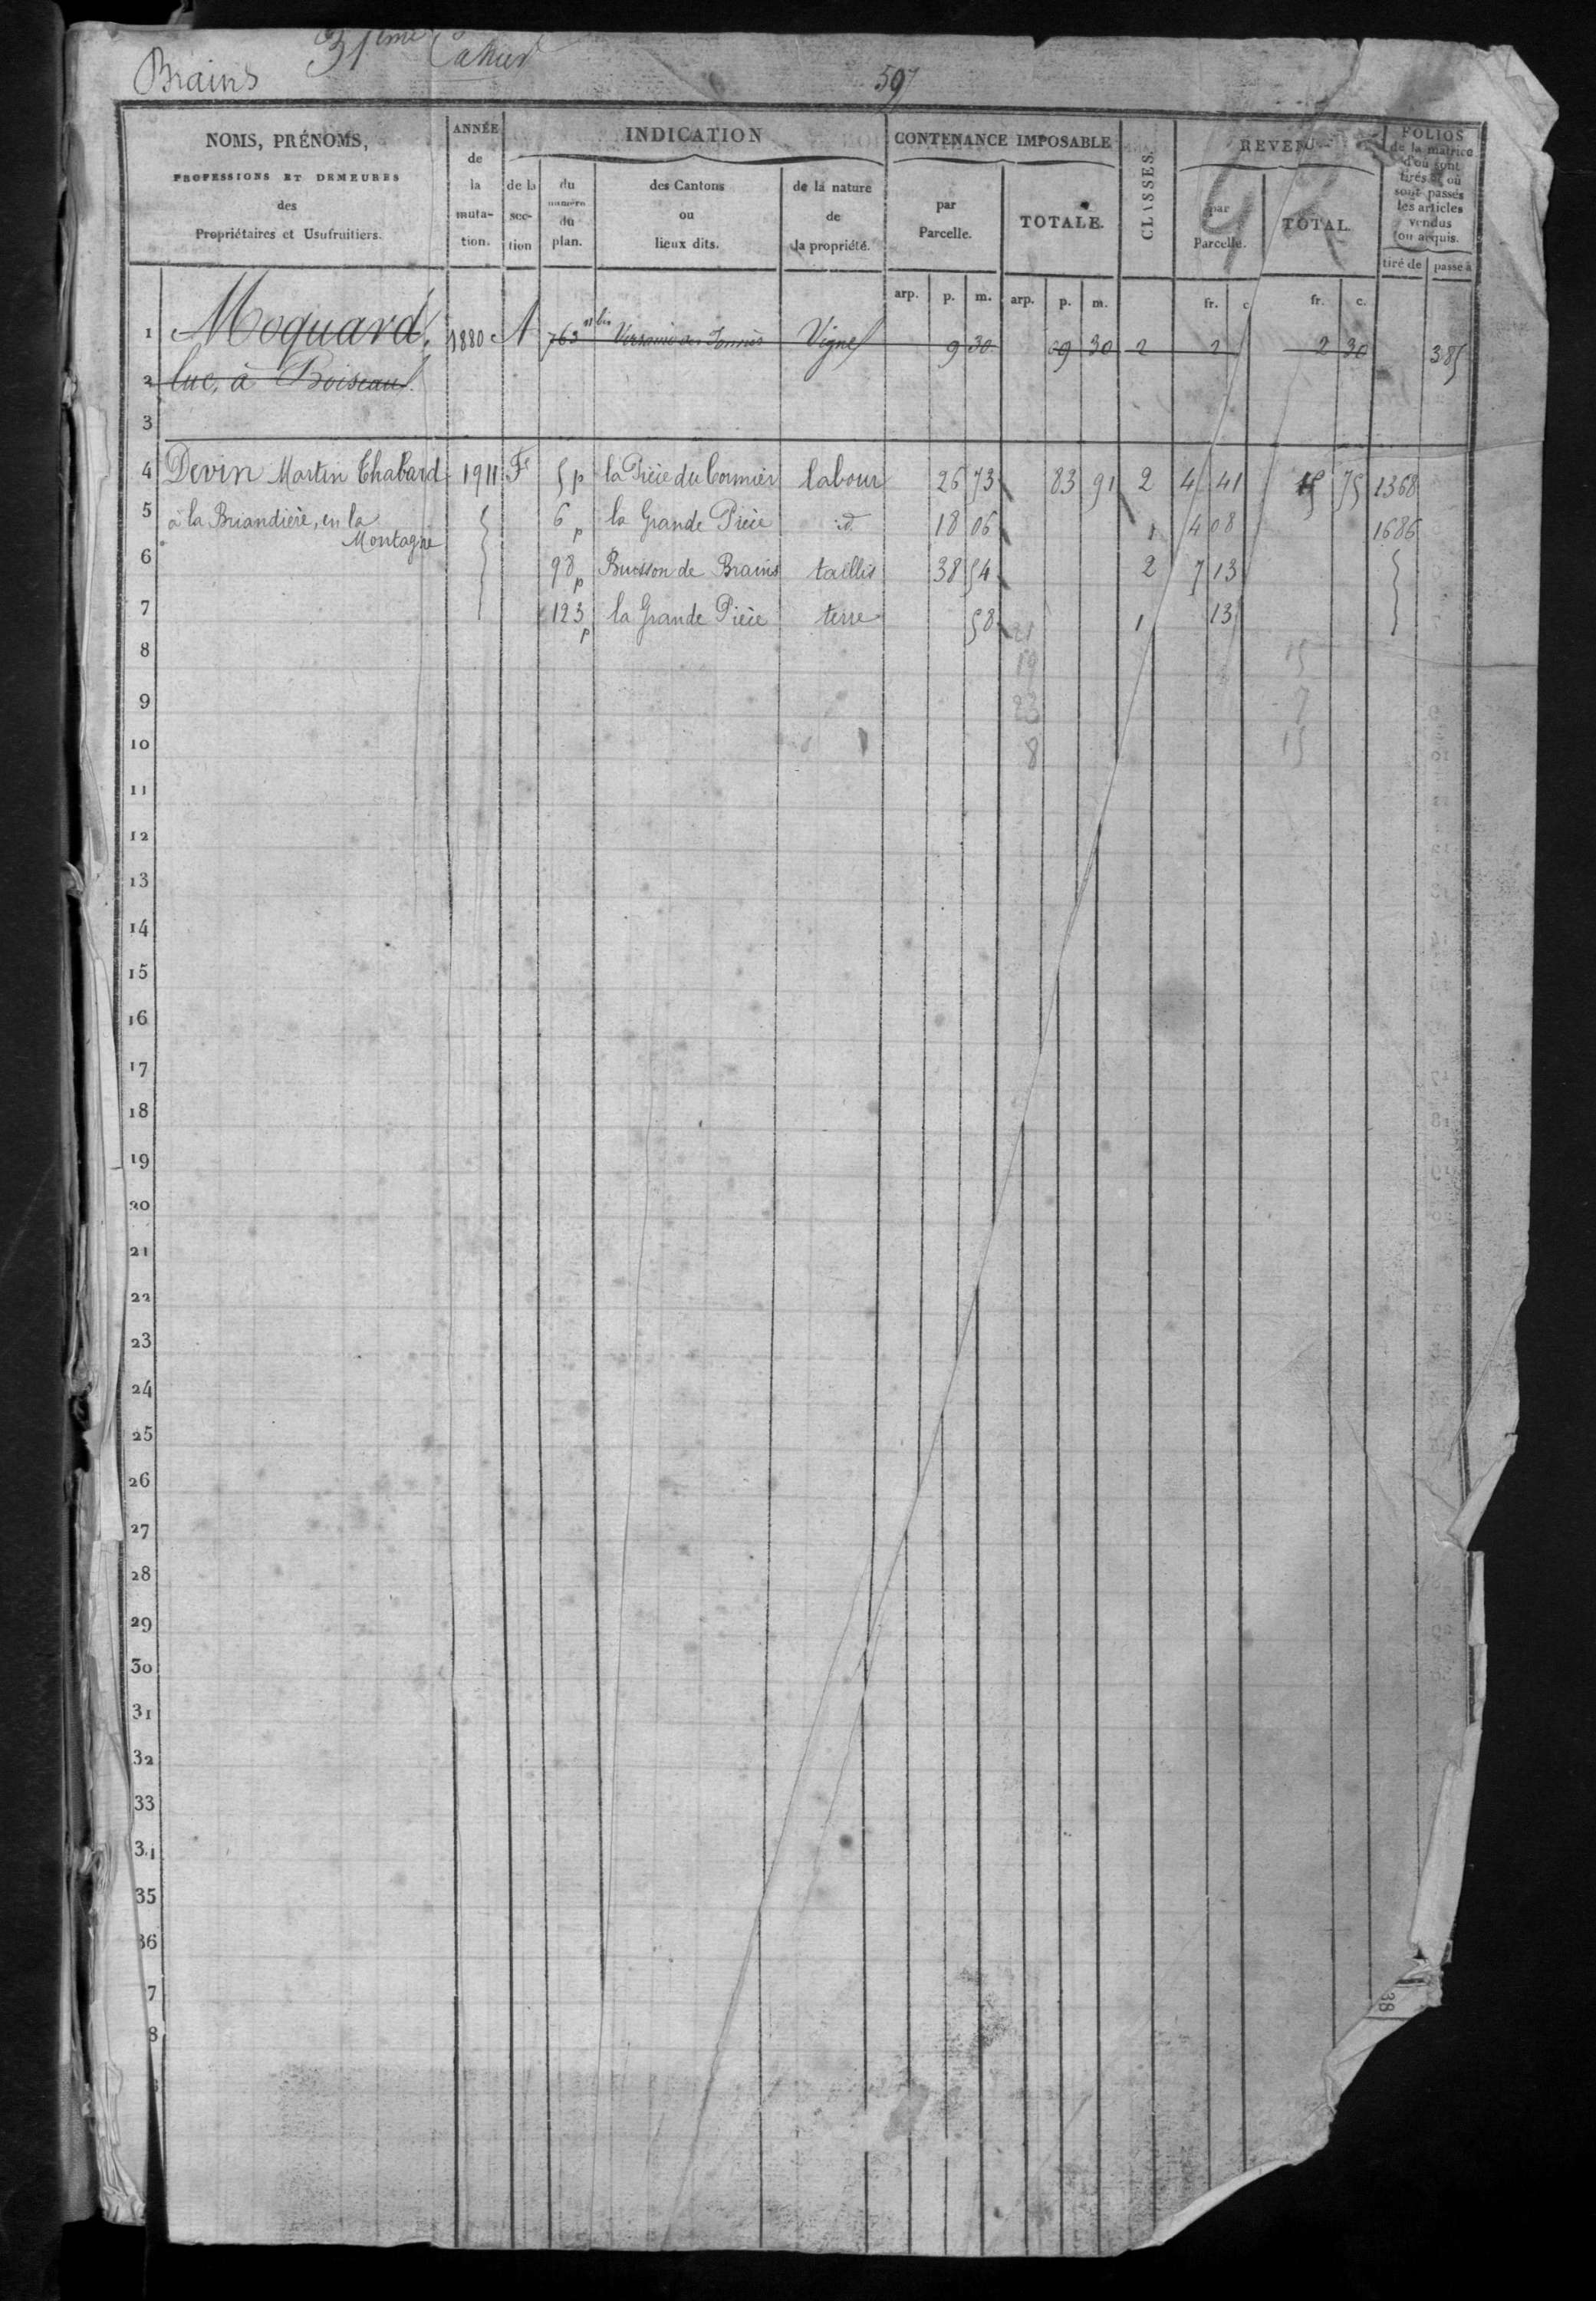 Brains
31ème Cahier
597
NOMS, PRÉNOMS,
PROFESSIONS ET DEMEURES
des
Propriétaires et Usufruitiers.
ANNÉE
de
la
muta-
tion.
INDICATION
de la
sec-
tion
du
numéro
du
plan.
des Cantons
ou
lieux dits.
de la nature
de
la propriété.
CONTENANCE IMPOSABLE
par
Parcelle.
TOTALE.
CLASSES.
REVENU
par
Parcelle.
TOTAL.
FOLIOS
de la matrice
d'où sont
tirés et où
sont passés
les articles
vendus
ou acquis.
tiré de passé à
arp. p. m. arp. p. m. fr. c. fr. c.
1 Moquard, 1880 A 763 bis des Vigne 9 30 09 30 2 2 2 30 385
2 luc, à Boiseau.
3
4 Devin Martin Thabard 1911 F 5p la Pièce du Cormier labour 26 73 83 91 2 4 41 15 75 1368
5 à la Briandière, en la Montagne 6p la Grande Pièce id 18 06 1 4 08 1686
6 98p Buisson de Brains taillis 38 54 2 7 13
7 123p la Grande Pièce terre 58 1 13
21
8 19 15
9 23 7
10 8 15
11
12
13
14
15
16
17
18
19
20
21
22
23
24
25
26
27
28
29
30
31
32
33
34
35
36
7
8
38